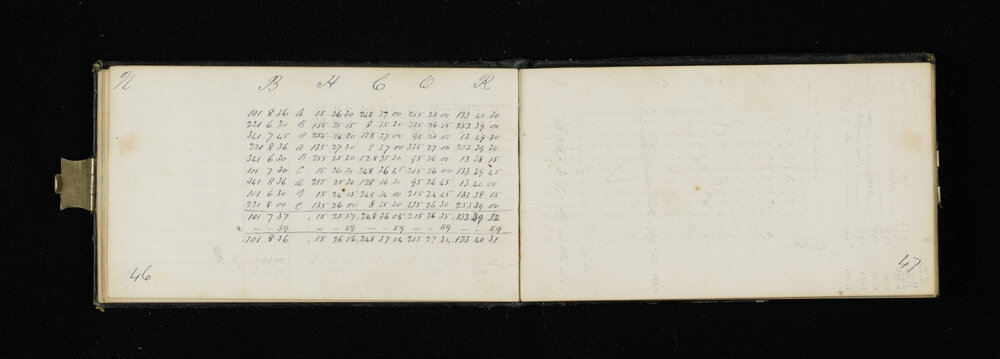 N B H C O R
101 8 36 A 15 26 30 248 37 00 215 25 00 133 41 30
221 6 30 B 135 25 15 8 35 30 335 26 15 253 39 00
341 7 45 C 255 26 30 128 37 00 95 28 00 13 49 30
221 8 36 A 135 27 30 8 37 00 335 27 00 253 39 30
341 6 30 B 255 25 30 128 35 30 95 26 00 13 38 15
101 7 30 C 15 26 30 248 36 45 215 26 00 133 39 45
341 8 36 A 255 25 30 128 36 30 95 26 45 13 40 00
101 6 30 B 15 24 15 248 34 00 215 24 45 133 38 15
221 8 00 C 135 26 00 8 35 30 335 26 30 253 39 00
101 7 37 15 25 57 248 36 05 215 26 35 133 39 32
- - 59 - - 59 - - 59 - - 59 - - 59
101 8 36 15 26 56 248 37 04 215 27 34 133 40 31
46
47